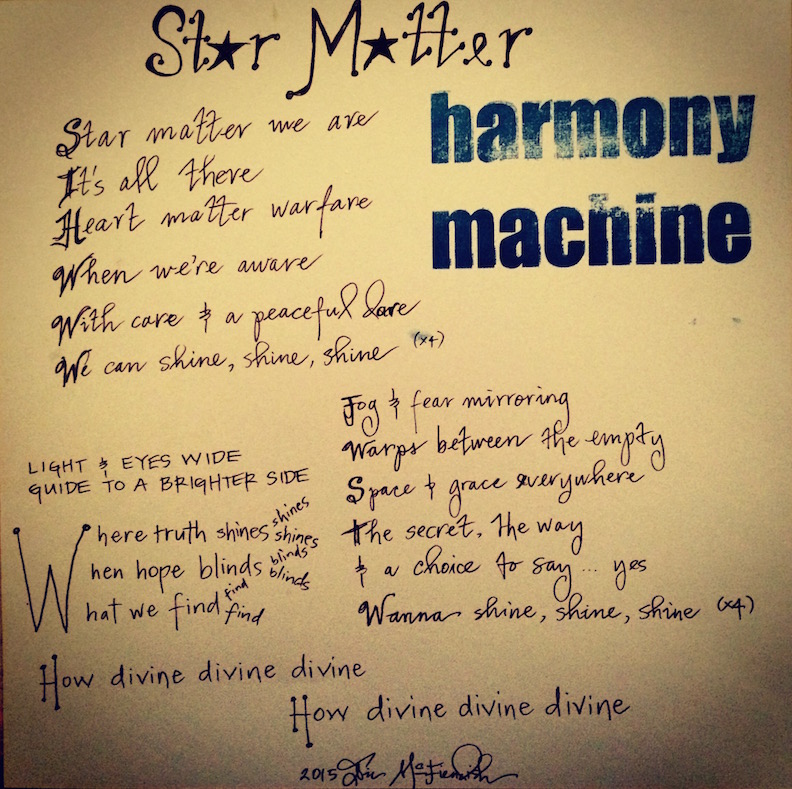 Star Matter
harmony
machine
Star matter we are
It's all there
Heart matter warfare
When we're aware
With care & a peaceful dare
We can shine, shine, shine (x4)
LIGHT & EYES WIDE
GUIDE TO A BRIGHTER SIDE
Where truth shines shines shines
When hope blinds blinds blinds
What we find find find
Fog & fear mirroring
Warps between the empty
Space & grace everywhere
The secret, the way
& a choice to say... yes
Wanna shine, shine, shine (x4)
How divine divine divine
How divine divine divine
2015